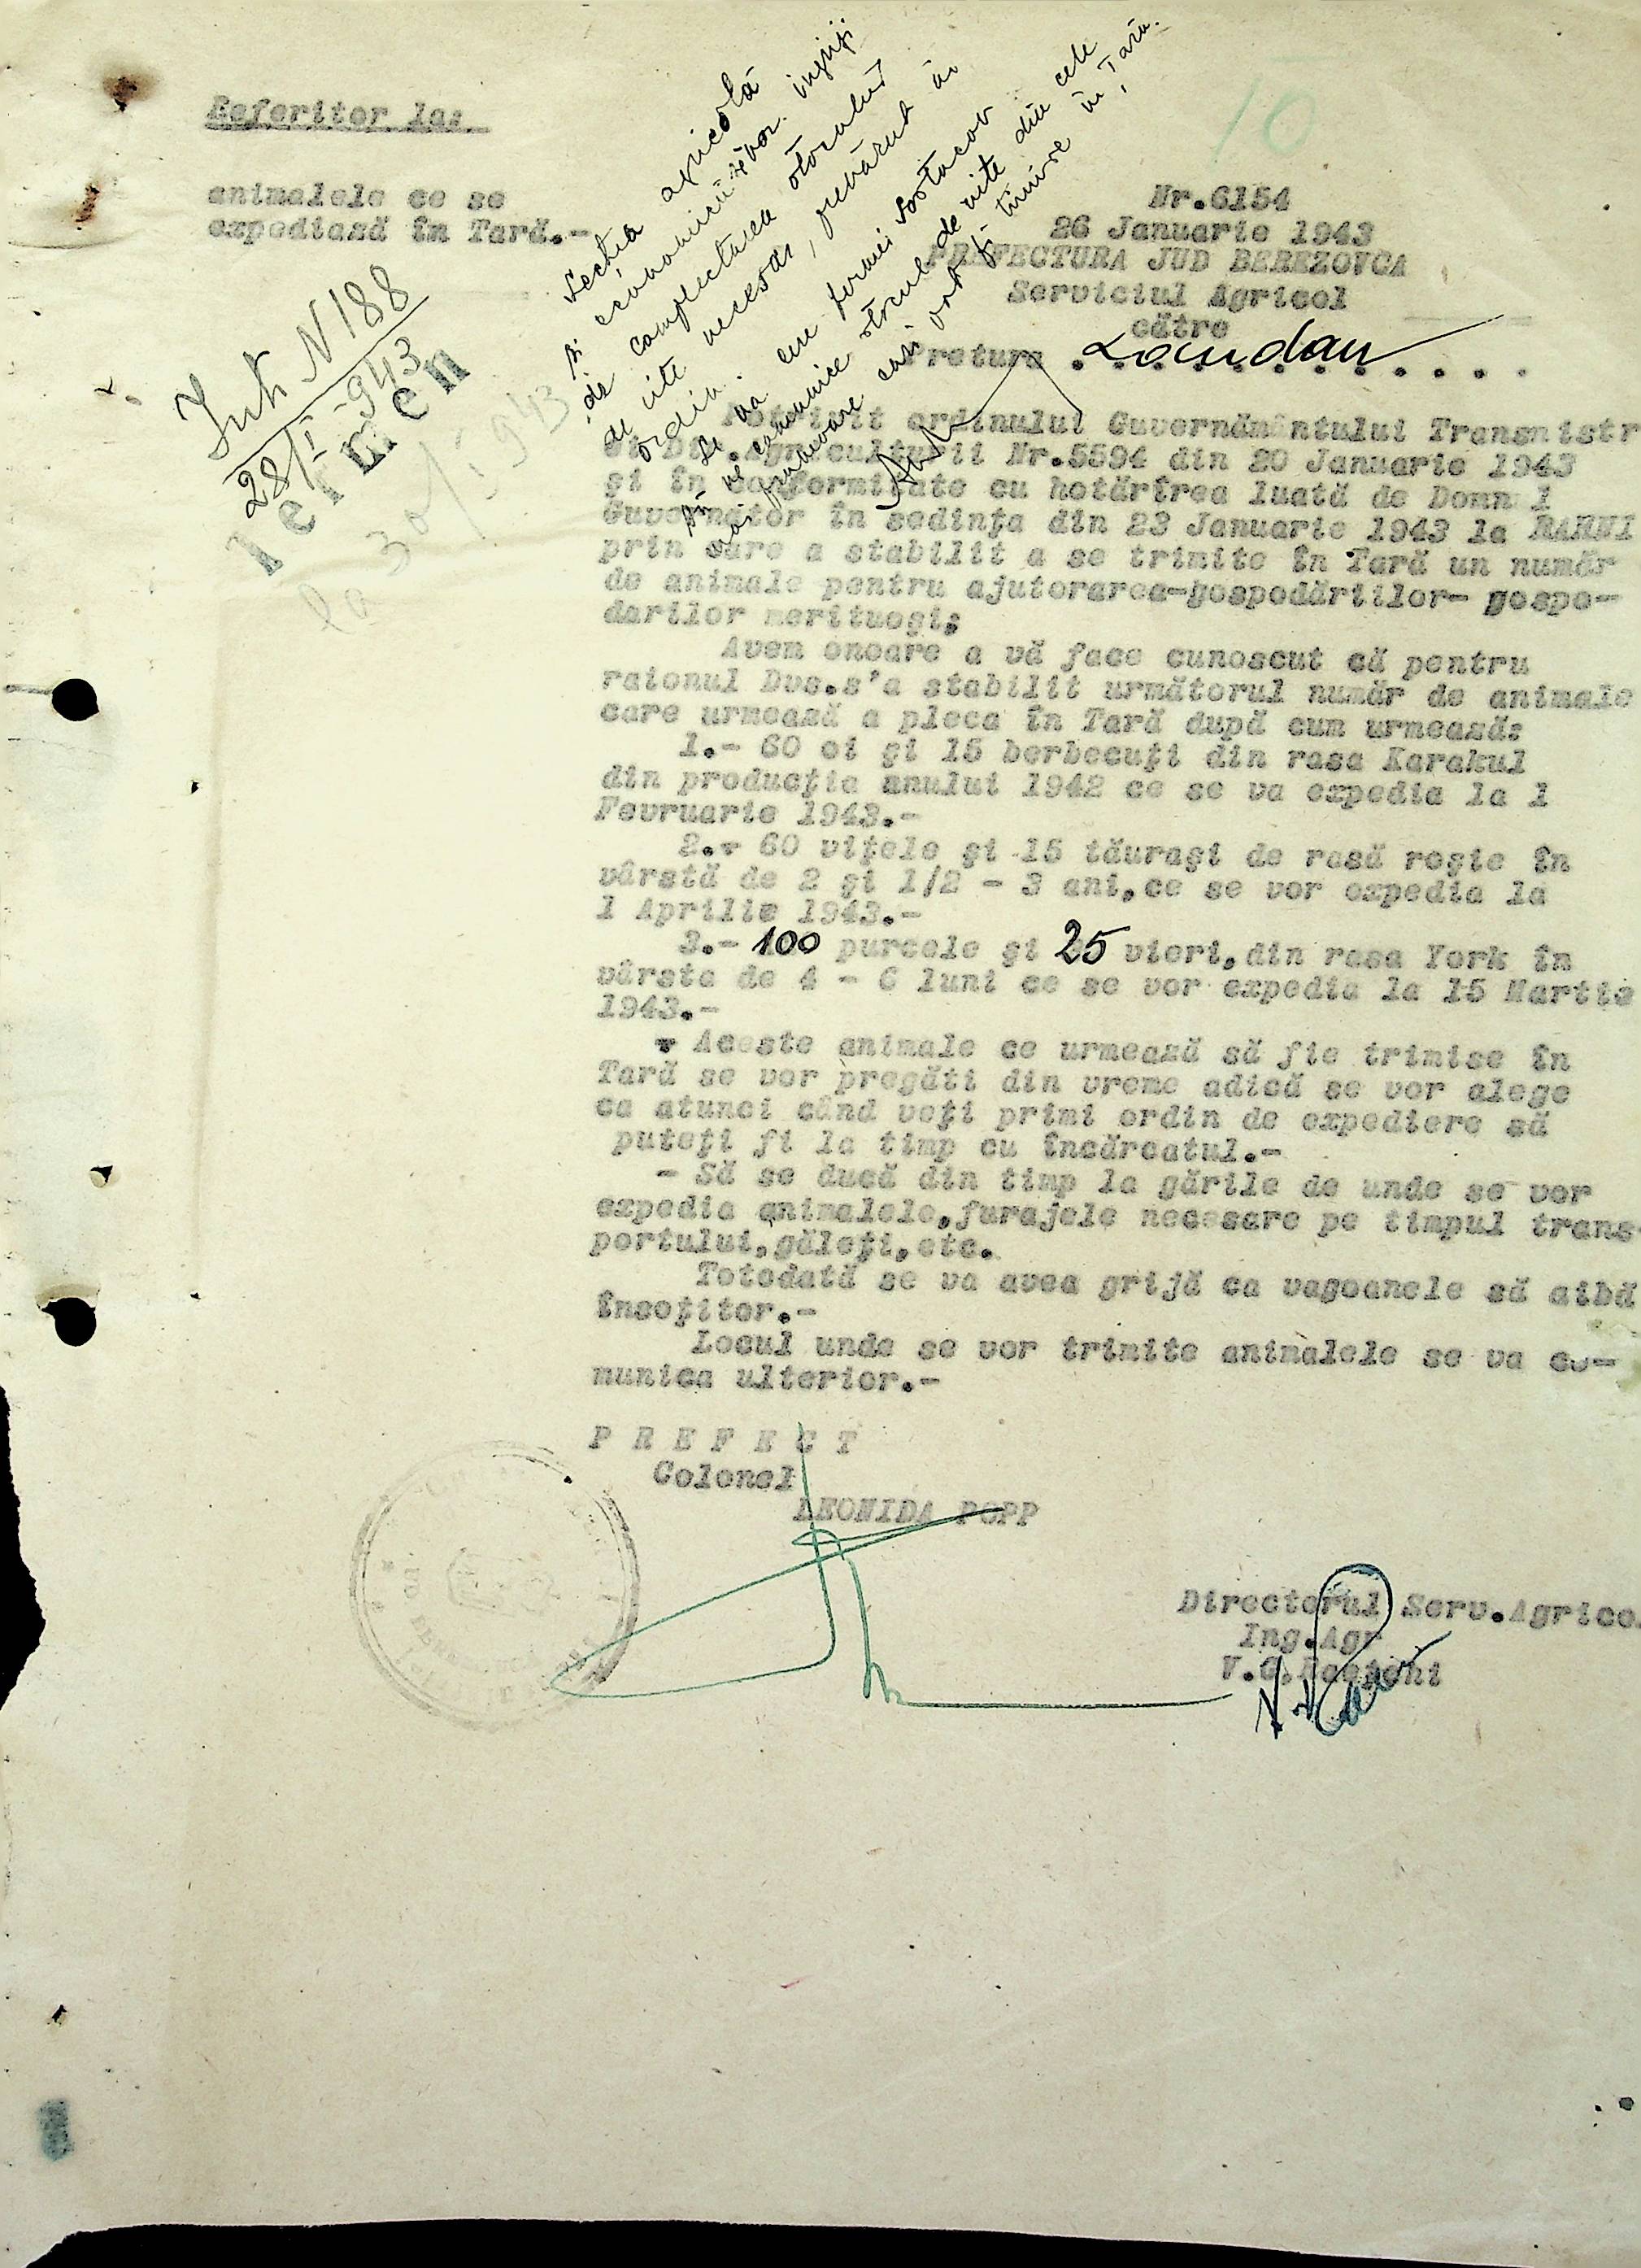 Referitor la:
animalele ce se
expediază în Tară.-
10
Nr.6154
26 Januarie 1943
PREFECTURA JUD BEREZOVCA
Serviciul Agricol
către
Pretura Landau
Int. N 188
28/I-943
Termen
la 30/I 943
Secția agricolă
și economică vor îngriji
de complectarea
de vite necesar, prevăzut în
ordin.
Potrivit ordinului Guvernământului Transnistr
și Dir.Agriculturii Nr.5594 din 20 Januarie 1943
și în conformitate cu hotărîrea luată de Domn l
Guvernator în sedința din 23 Januarie 1943 la
prin care a stabilit a se trimite în Tară un număr
de animale pentru ajutorarea-gospodăriilor- gospo-
darilor merituoși;
Avem onoare a vă face cunoscut că pentru
raionul Dvs.s'a stabilit următorul număr de animale
care urmează a pleca în Tară după cum urmează:
1.- 60 oi și 15 berbecuți din rasa Karakul
din producția anului 1942 ce se va expedia la 1
Fevruarie 1943.-
2.- 60 vițele și 15 tăurași de rasă roșie în
vârstă de 2 și 1/2 - 3 ani,ce se vor expedia la
1 Aprilie 1943.-
3.- 100 purcele și 25 vieri,din rasa York în
vârsta de 4 - 6 luni ce se vor expedia la 15 Martie
1943.-
- Aceste animale ce urmează să fie trimise în
Tară se vor pregăti din vreme adică se vor alege
ca atunci când veți primi ordin de expediere să
puteți fi la timp cu încărcatul.-
- Să se ducă din timp la gările de unde se vor
expedia animalele,furajele necesare pe timpul trans-
portului,găleți,etc.
Totodată se va avea grijă ca vagoanele să aibă
însoțitor.-
Locul unde se vor trimite animalele se va co-
munica ulterior.-
P R E F E C T
Colonel
LEONIDA POPP
Directorul Serv.Agricol
Ing.Agr